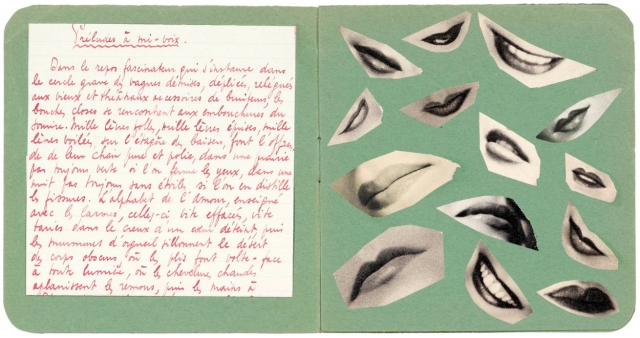 Préludes à mi-voix.
Dans le repos fascinateur qui s'instaure dans
le cercle de vagues détruites, dépliées, reléguées
aux vieux et théâtraux accessoires de les
bouches closes se rencontrent aux embouchures du
sourire. Mille lèvres folles, mille lèvres éprises, mille
lèvres voilées, sur l'étagère du baiser, font l'offran-
de de leur chair pure et polie, dans une prairie
pas toujours verte si l'on ferme les yeux, dans une
nuit pas toujours sans étoile si l'on en distille
les fissures. L'alphabet de l'Amour, enseigné
avec les larmes, celles-ci vite effacées, vite
taries dans le creux d'un cœur déteint puis
les murmures d'orgueil sillonnent le désert
des corps obscurs, où les plis font volte-face
à toute lumière, où les chevelures chaudes
aplanissent les remous, puis les mains à